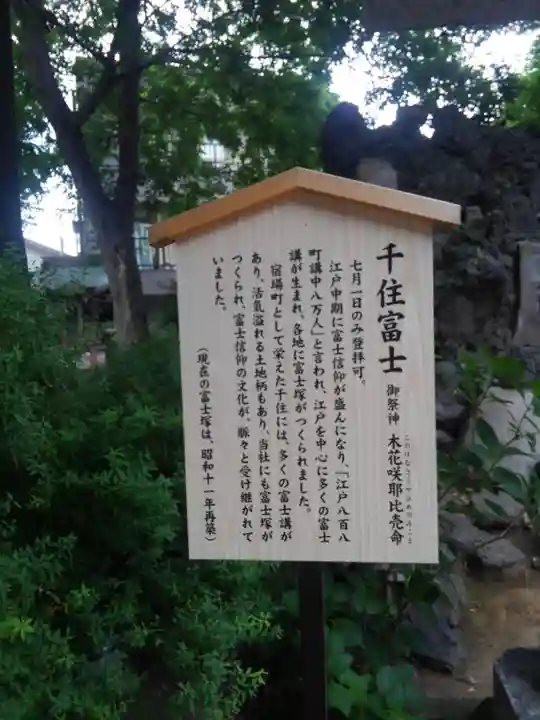 千住富士 御祭神 木花咲耶比売命
このはなさくやひめのみこと
七月一日のみ登拝可。
江戸中期に富士信仰が盛んになり、「江戸八百八
町講中八万人」と言われ、江戸を中心に多くの富士
講が生まれ、各地に富士塚がつくられました。
宿場町として栄えた千住には、多くの富士講が
あり、活気溢れる土地柄もあり、当社にも富士塚が
つくられ、富士信仰の文化が、脈々と受け継がれて
いました。
（現在の富士塚は、昭和十一年再築）